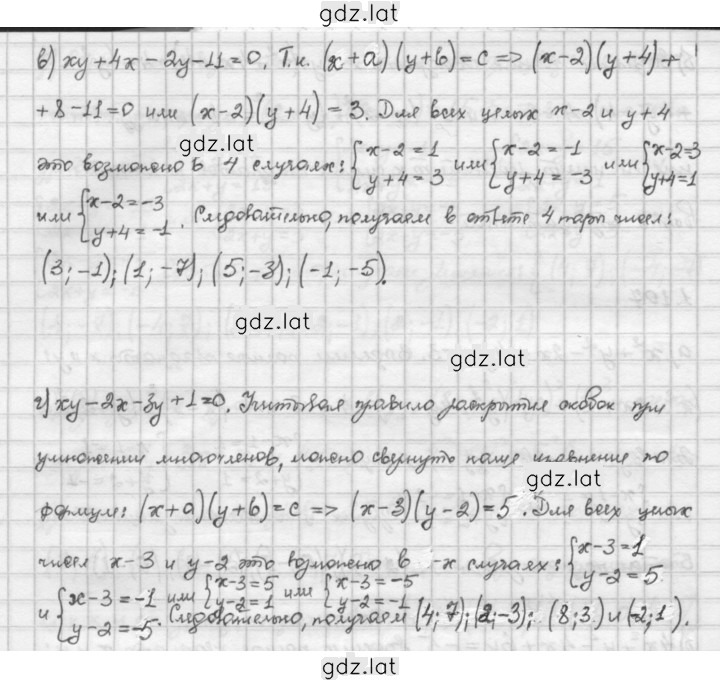 gdz.lat
в) xy+4x-2y-11=0. Т.к. (x+a)(y+b)=c => (x-2)(y+4)+
+8-11=0 или (x-2)(y+4)=3. Для всех целых x-2 и y+4
gdz.lat
это возможно в 4 случаях: {x-2=1 y+4=3 или {x-2=-1 y+4=-3 или {x-2=3 y+4=1
или {x-2=-3 y+4=-1. Следовательно, получаем в ответе 4 пары чисел:
(3;-1); (1;-7); (5;-3); (-1;-5).
gdz.lat
gdz.lat
г) xy-2x-3y+1=0. Учитывая правило раскрытия скобок при
умножении многочленов, можно свернуть наше уравнение по
gdz.lat
формуле: (x+a)(y+b)=c => (x-3)(y-2)=5. Для всех целых
чисел x-3 и y-2 это возможно в -х случаях: {x-3=1 y-2=5
и {x-3=-1 y-2=-5 или {x-3=5 y-2=1 или {x-3=-5 y-2=-1. Следовательно, получаем (4;7); (2;-3); (8;3) и (-2;1).
gdz.lat